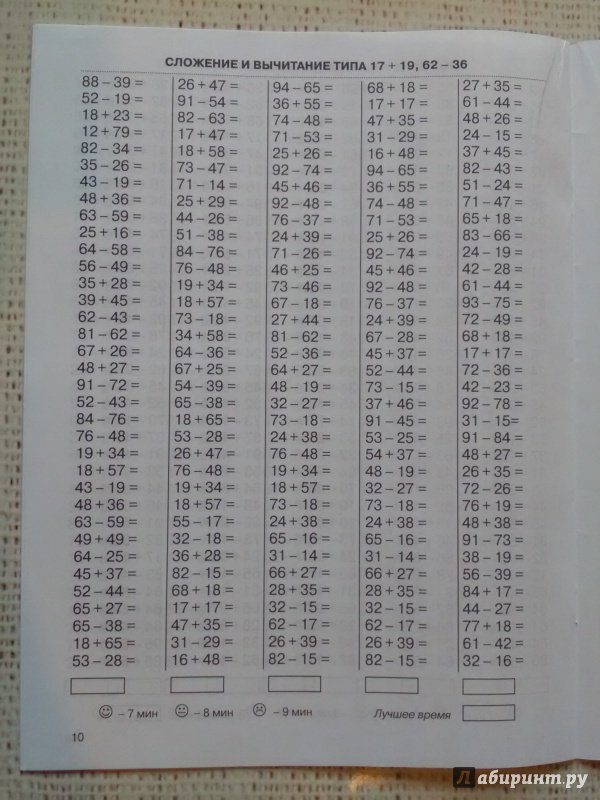 СЛОЖЕНИЕ И ВЫЧИТАНИЕ ТИПА 17 + 19, 62 – 36
88 – 39 = 26 + 47 = 94 – 65 = 68 + 18 = 27 + 35 =
52 – 19 = 91 – 54 = 36 + 55 = 17 + 17 = 61 – 44 =
18 + 23 = 82 – 63 = 74 – 48 = 47 + 35 = 48 + 26 =
12 + 79 = 17 + 47 = 71 – 53 = 31 – 29 = 24 – 15 =
82 – 34 = 18 + 58 = 25 + 26 = 16 + 48 = 37 + 45 =
35 – 26 = 73 – 47 = 92 – 74 = 94 – 65 = 82 – 43 =
43 – 19 = 71 – 14 = 45 + 46 = 36 + 55 = 51 – 24 =
48 + 36 = 25 + 29 = 92 – 48 = 74 – 48 = 71 – 47 =
63 – 59 = 44 – 26 = 76 – 37 = 71 – 53 = 65 + 18 =
25 + 16 = 51 – 38 = 24 + 39 = 25 + 26 = 83 – 66 =
64 – 58 = 84 – 76 = 71 – 26 = 92 – 74 = 24 – 19 =
56 – 49 = 76 – 48 = 46 + 25 = 45 + 46 = 42 – 28 =
35 + 28 = 19 + 34 = 73 – 46 = 92 – 48 = 61 – 44 =
39 + 45 = 18 + 57 = 67 – 18 = 76 – 37 = 93 – 75 =
62 – 43 = 73 – 18 = 27 + 44 = 24 + 39 = 72 – 49 =
81 – 62 = 34 + 58 = 81 – 62 = 67 – 28 = 68 + 18 =
67 + 26 = 64 – 36 = 52 – 36 = 45 + 37 = 17 + 17 =
48 + 27 = 67 + 25 = 64 + 27 = 52 – 44 = 72 – 36 =
91 – 72 = 54 – 39 = 48 – 19 = 73 – 15 = 42 – 23 =
52 – 43 = 65 – 38 = 32 – 27 = 37 + 46 = 92 – 78 =
84 – 76 = 18 + 65 = 73 – 18 = 91 – 45 = 31 – 15=
76 – 48 = 53 – 28 = 24 + 38 = 53 – 25 = 91 – 84 =
19 + 34 = 26 + 47 = 76 – 48 = 54 + 37 = 48 + 27 =
18 + 57 = 76 – 48 = 19 + 34 = 48 – 19 = 26 + 35 =
43 – 19 = 19 + 34 = 18 + 57 = 32 – 27 = 72 – 26 =
48 + 36 = 18 + 57 = 73 – 18 = 73 – 18 = 76 + 19 =
63 – 59 = 55 – 17 = 24 + 38 = 24 + 38 = 48 + 38 =
49 + 49 = 32 – 18 = 65 – 16 = 65 – 16 = 91 – 73 =
64 – 25 = 36 + 28 = 31 – 14 = 31 – 14 = 38 – 19 =
45 + 37 = 82 – 15 = 66 + 27 = 66 + 27 = 56 – 39 =
52 – 44 = 68 + 18 = 28 + 35 = 28 + 35 = 84 + 17 =
65 + 27 = 17 + 17 = 32 – 15 = 32 – 15 = 44 – 27 =
65 – 38 = 47 + 35 = 62 – 17 = 62 – 17 = 77 + 18 =
18 + 65 = 31 – 29 = 26 + 39 = 26 + 39 = 61 – 42 =
53 – 28 = 16 + 48 = 82 – 15 = 82 – 15 = 32 – 16 =
– 7 мин – 8 мин – 9 мин Лучшее время
10
Лабиринт.ру